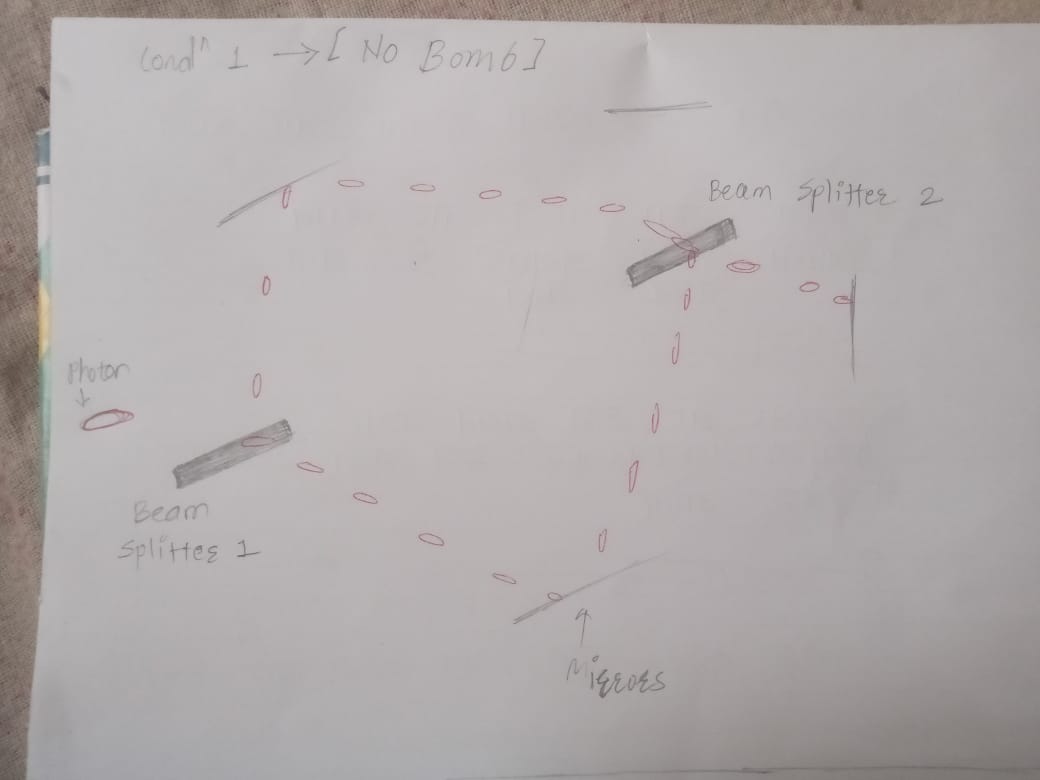 Condⁿ 1 → [ No Bomb ]
Beam Splitter 2
Photon
↓
Beam
Splitter 1
↑
Mirrors